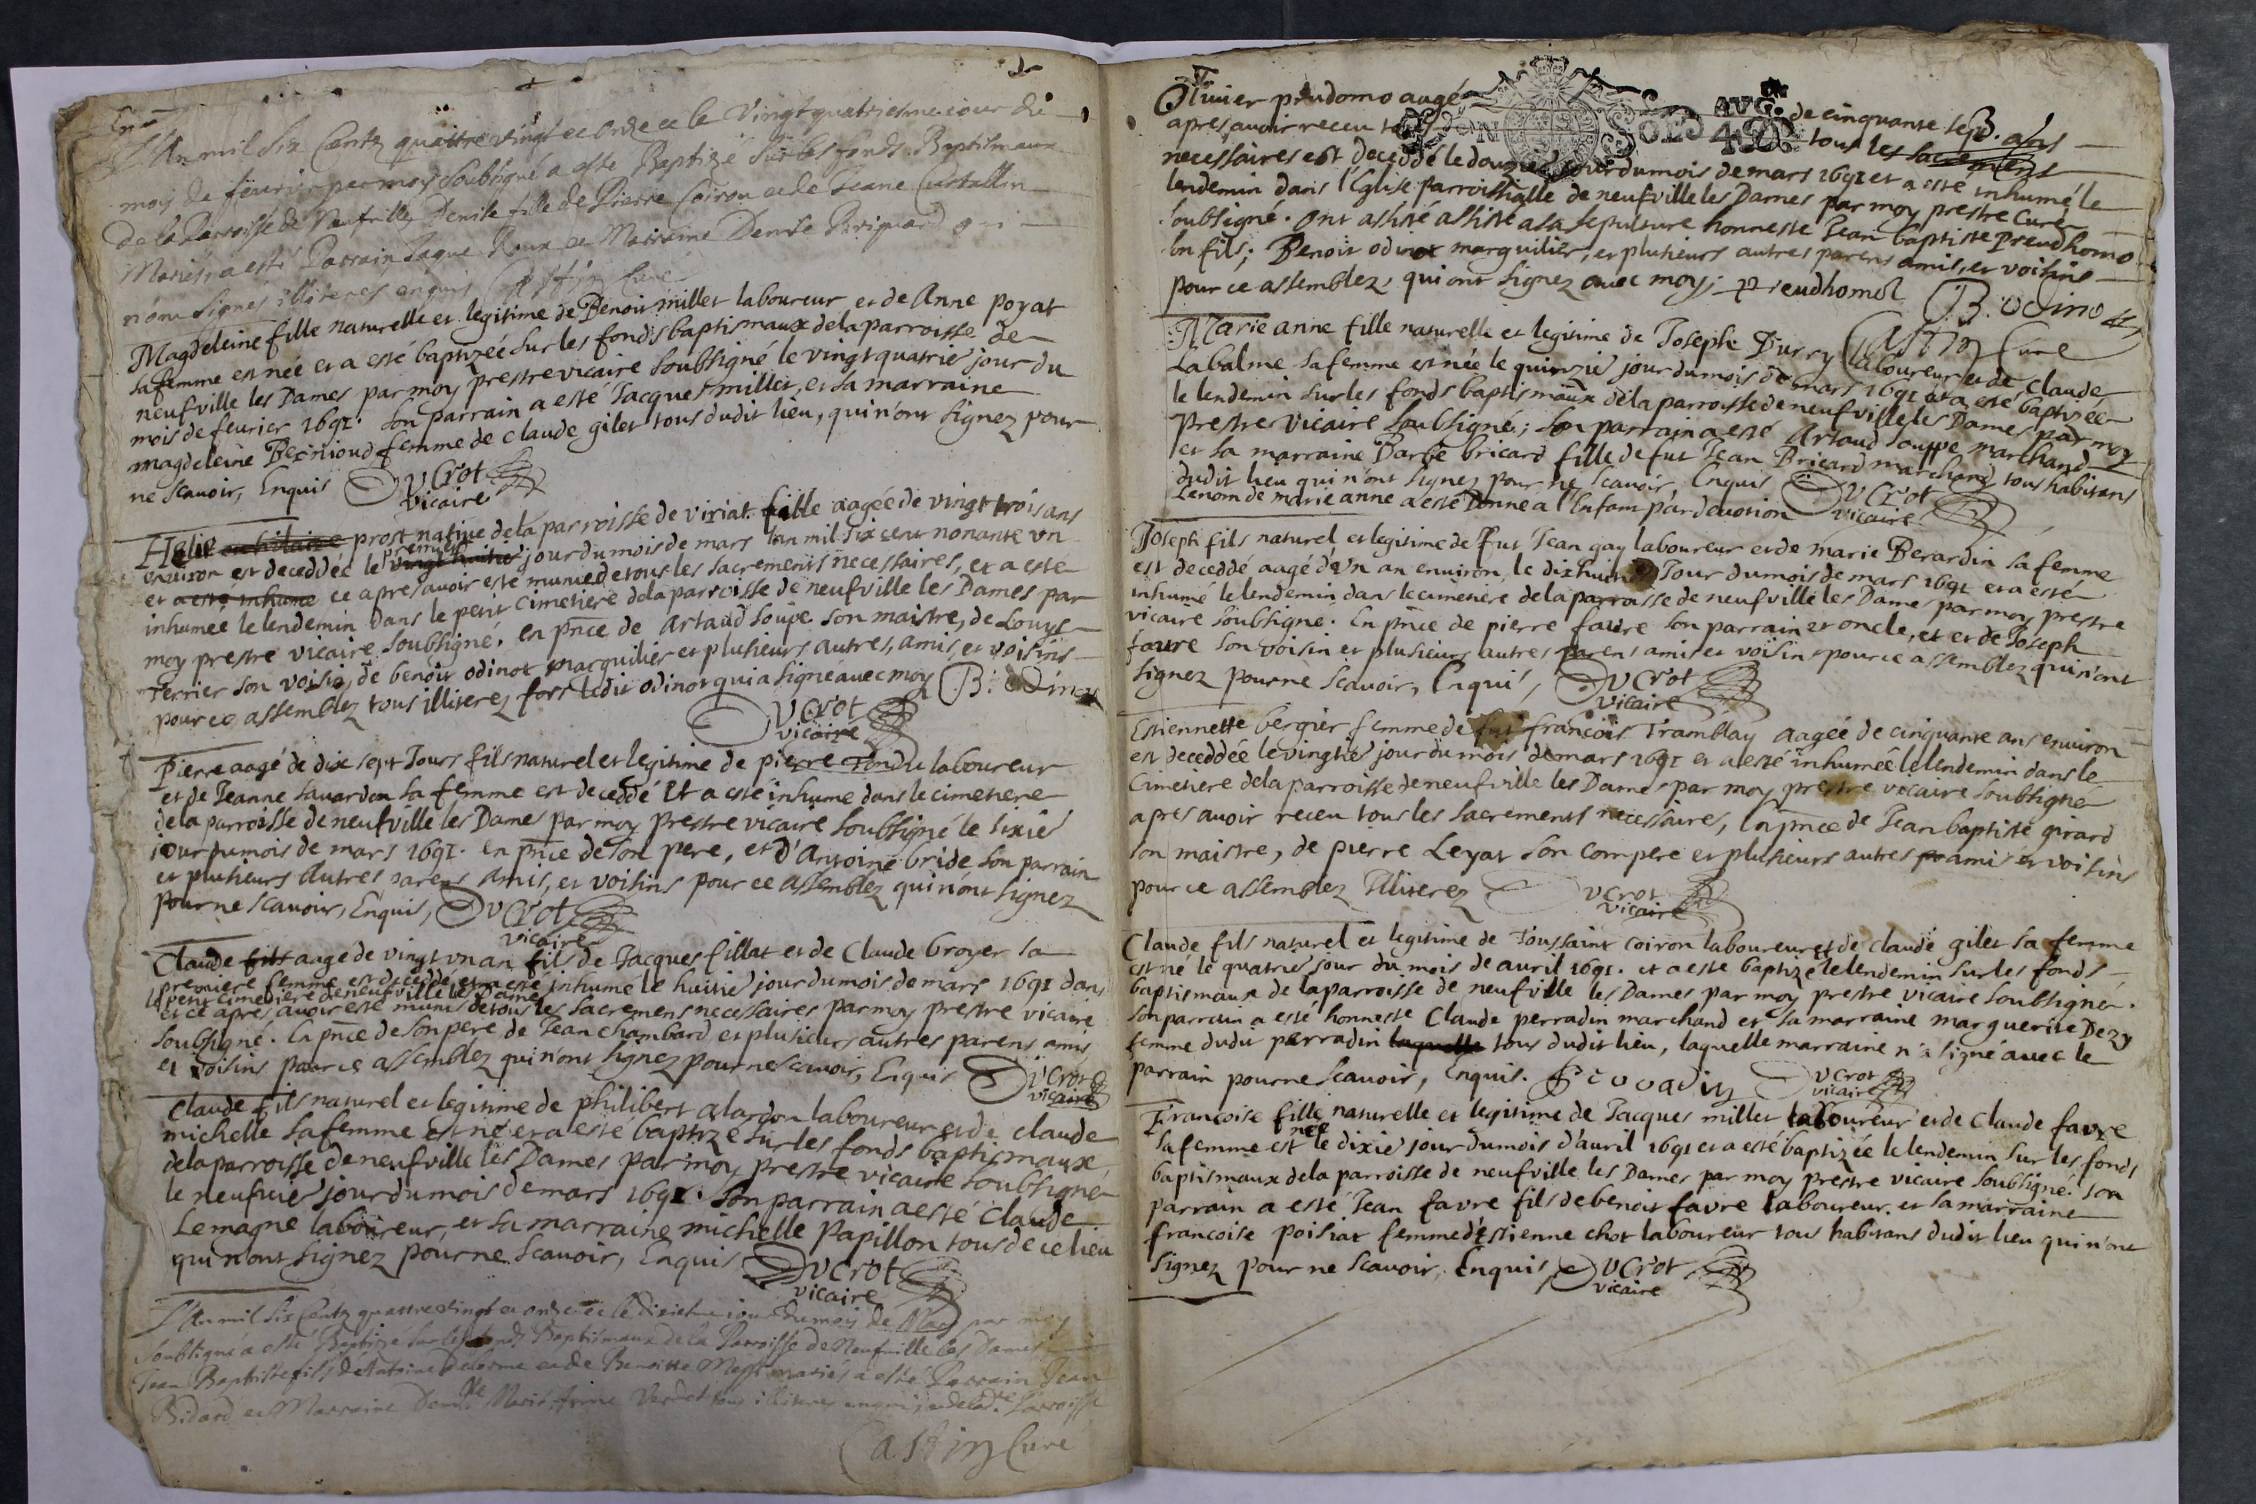 L'An mil six Centz quattre vingt et onze et le Vingt quatriesme iour du
mois de feurier par moy soubsigné a esté Baptizé sur les fonds Baptismaux
de la Parroisse de Neufville Denise fille de Pierre Coiron et de Jeane
Mariés, a esté Parrain Jaque Roux et Marraine Denise qui
n'ont signés illiterés enquis Castin Curé
Magdeleine fille naturelle et legitime de Benoit millet laboureur et de Anne poyat
sa femme est née et a esté baptizée sur les fonds baptismaux dela parroisse de
neufville les Dames par moy prestre vicaire soubsigné le vingt quatrie jour du
mois de feurier 1691. son parrain a esté Jacques millet, et sa marraine
magdeleine femme de claude gilet tous dudit lieu, qui n'ont signez pour
ne scauoir, Enquis Ducrot
vicaire
Helie prost natiue dela parroisse de viriat fille aagée de vingt trois ans
enuiron est deceddée le premier jour dumois de mars l'an mil six cent nonante vn
et a esté inhumé ce apres auoir esté munie de tous les sacrements necessaires, et a este
inhumee le lendemin dans le petit cimetiere dela parroisse de neufville les Dames par
moy prestre vicaire soubsigné. en pnce de Artaud soupe son maistre, de Louys
Terrier son voisin, de benoit odinot marguilier et plusieurs autres, amis, et voisins
pour ce assemblez tous illiterez fors ledit odinot qui a signé auec moy B. odinot
Ducrot
vicaire
Pierre aagé de dix sept Jours fils naturel et legitime de pierre laboureur
et de Jeanne sauardon sa femme est deceddé Et a esté inhume dans le cimetiere
de la parroisse de neufville les Dames par moy prestre vicaire soubsigné le sixie
jour dumois de mars 1691. en pnce de son pere, et d'Antoine bride son parrain
et plusieurs autres parens amis, et voisins pour ce assemblez qui n'ont signez
pour ne scauoir, Enquis, Ducrot
vicaire
Claude fils aage de vingt vn an fils de Jacques fillat et de Claude broyer sa
premiere femme est deceddé, et a esté inhumé le huitie jour dumois de mars 1691 dans
le petit cimetiere de neufville les Dames
et ce apres auoir esté munis de tous les sacremens necessaires par moy prestre vicaire
soubsigné. En pnce de son pere de Jean chambard et plusieurs autres parens amis
et voisins pour ce assemblez qui n'ont signez pour ne scauoir, Enquis Ducrot
vicaire
Claude fils naturel et legitime de philibert alardon laboureur et de claude
michelle sa femme est né et a esté baptizé sur les fonds baptismaux
dela parroisse de neufville les Dames par moy prestre vicaire soubsigné
le neufuie jour dumois de mars 1691. son parrain a esté Claude
Lemagne laboureur, et sa marraine michelle Papillon tous de ce lieu
qui n'ont signez pour ne scauoir, Enquis Ducrot
vicaire
L'An mil six Centz quattre vingt et onze et le dixiesme iour du mois de Mars par moy
soubsigné a esté Baptizé sur les fonds Baptismaux de la Parroisse de Neufuille les Dames
Jean Baptiste fils de Antoine Delorme et de Benoitte mariés a esté Parrain Jean
Bidard et Marraine Marie tous illiterés enquis de la d. Parroisse
Castin Curé
Oliuier prudomo aagé de cinquante sept ans
apres auoir receu tous les sacremens
necessaires est deceddé le douzie jour du mois de mars 1691 et a esté inhumé le
lendemin dans l'Eglise parroissialle de neufville les Dames par moy prestre Curé
soubsigné. Ont assisté assisté a sa sepulture honneste Jean baptiste preudhomo
son fils; Benoit odinot marguilier, et plusieurs autres parens amis, et voisins
pour ce assemblez, qui ont signez auec moy; Preudhomot B. odinot
Castin Curé
Marie anne fille naturelle et legitime de Joseph Durry laboureur et de claude
Labalme sa femme est née le quinzie jour dumois de mars 1691 et a esté baptizée
le lendemin sur les fonds baptismaux dela parroisse de neufville les Dames par moy
prestre vicaire soubsigné; son parrain a esté Artaud souppe marchand
et sa marraine Darbe bricard fille de fut Jean Bricard marchand tous habitans
dudit lieu qui n'ont signez pour ne scauoir Enquis Ducrot
Le nom de marie anne a esté Donné a l'Enfant par deuotion vicaire
Joseph fils naturel et legitime de fut Jean gay laboureur et de marie Berardin sa femme
est deceddé aagé d'vn an enuiron, le dixhuitie Jour dumois de mars 1691 et a esté
inhumé le lendemin dans le cimetiere dela parroisse de neufville les Dames par moy prestre
vicaire soubsigné. En pnce de pierre faure son parrain et oncle, et et de Joseph
faure son voisin et plusieurs autres parens amis et voisins pour ce assemblez qui n'ont
signez pour ne scauoir, Enquis, Ducrot
vicaire
Estiennette bergier femme de fut francois Tramblay aagée de cinquante ans enuiron
est deceddée le vingtie jour du mois de mars 1691 et a esté inhumée le lendemin dans le
Cimetiere dela parroisse de neufville les Dames par moy prestre vicaire soubsigné
apres auoir receu tous les sacrements necessaires, en pnce de Jean baptiste girard
son maistre, de pierre Leyat son compere et plusieurs autres amis et voisins
pour ce assemblez Illiterez Ducrot
vicaire
Claude fils naturel et legitime de Toussaint coiron laboureur et de claude gilet sa femme
est né le quatrie jour du mois de auril 1691. et a este baptizé le lendemin sur les fonds
baptismaux de la parroisse de neufville les Dames par moy prestre vicaire soubsigné.
son parrain a esté honneste Claude perradin marchand et sa marraine marguerite Dezy
femme dudit perradin laquelle tous dudit lieu, laquelle marraine n'a signé auec le
parrain pour ne scauoir, Enquis. Ducrot
vicaire
Francoise fille naturelle et legitime de Jacques millet laboureur et de Claude favre
sa femme est née le dixie jour dumois d'auril 1691 et a esté baptizée le lendemin sur les fonds
baptismaux dela parroisse de neufville les Dames par moy prestre vicaire soubsigné. son
parrain a esté Jean favre fils de benoit favre laboureur. et sa marraine
francoise poisiat femme d'estienne chot laboureur tous habitans dudit lieu qui n'ont
signez pour ne scauoir, Enquis, Ducrot
vicaire